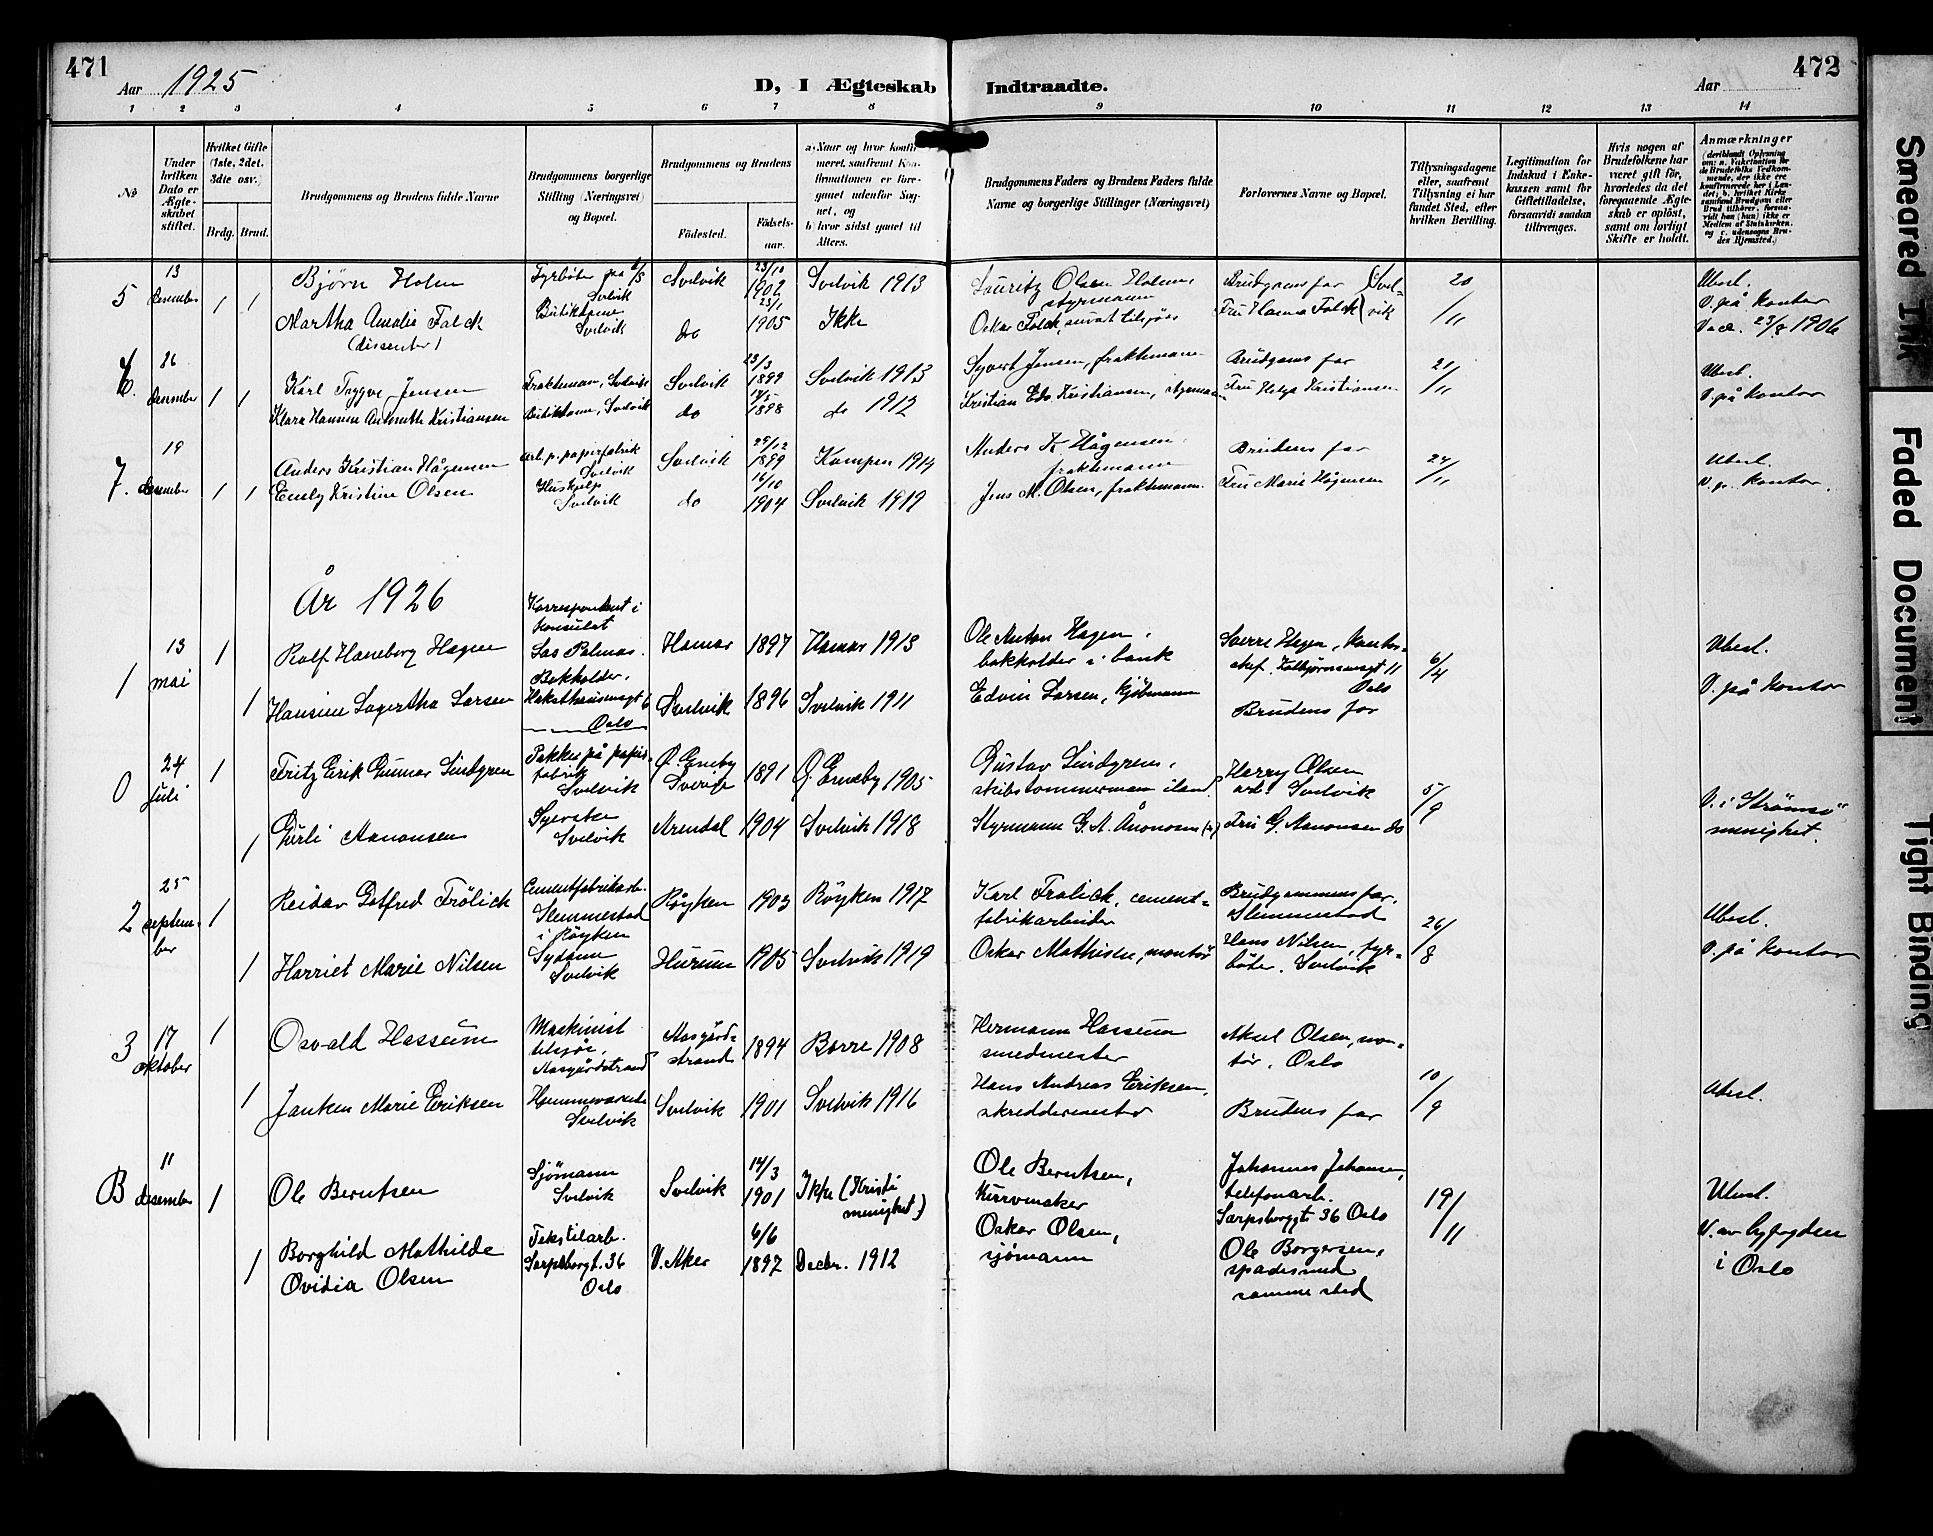 471
Aar 1925
D, I Ægteskab Indtraadte.
Aar
472
1 2 3 4 5 6 7 8 9 10 11 12 13 14
No
Under hvilken Dato er Ægteskabet stiftet.
Hvilket Gifte (1ste, 2det, 3dte osv.)
Brdg. Brud.
Brudgommens og Brudens fulde Navne
Brudgommens borgerlige Stilling (Næringsvei) og Bopæl.
Brudgommens og Brudens
Födested. Födsels-aar.
a) Naar og hvor konfirmeret, saafremt Konfirmationen er foregaaet udenfor Sognet, og
b) hvor sidst gaaet til Alters.
Brudgommens Faders og Brudens Faders fulde Navne og borgerlige Stillinger (Næringsvei)
Forlovernes Navne og Bopæl.
Tillysningsdagene eller, saafremt Tillysning ei har fundet Sted, efter hvilken Bevilling.
Legitimation for Indskud i Enkekassen samt for Giftetilladelse, forsaavidt saadan tiltrænges.
Hvis nogen af Brudefolkene har været gift för, hvorledes da det foregaaende Ægteskab er oplöst, samt om lovligt Skifte er holdt.
Anmærkninger
5 13 desember 1 1
Bjørn Holm
Fyrbøter på d/s Svelvik
Svelvik 23/10 1902
Svelvik 1913
Lauritz Olsen Holm, styrmann
Brudgoms far
20/11
Ubesl.
Martha Amalie Falck
(dissenter)
Butikkdame Svelvik
do 23/1 1905
Ikke
Oskar Falck,
Fru Hanna Falck Svelvik
V. på kontor
Vacc. 23/8 1906
6. 26 desember 1 1
Karl Trygve Jensen
Fraktemann, Svelvik
Svelvik 23/3 1899
Svelvik 1913
Syvert Jensen, fraktemann
Brudgoms far
21/11
Ubesl.
Klara Hannine Antonette Kristiansen
Butikkdame, Svelvik
do 1898
do 1912
Kristian Edv. Kristiansen,
Fru Helga Kristiansen
V. på kontor
7. 19 desember 1 1
Anders Kristian Hågensen
Arb. p. papirfabrik Svelvik
Svelvik 29/12 1899
Kampen 1914
Anders K Hågensen, fraktemann
Brudens far
24/11
Ubesl.
Emily Kristine Olsen
Hushjelp Svelvik
do 16/10 1904
Svelvik 1919
Jens M. Olsen, fraktemann
Fru Marie Hågensen
V. p. kontor.
År 1926
1 13 mai 1
Rolf Haneborg Hagen
Korrespondent i konsulat Las Palmas.
Hamar 1897
Hamar 1913
Ole Anton Hagen, bokholder i bank
Sverre Hagen, kontorchef. 11 Oslo
6/4
Ubesl.
1
Hansine Lagertha Larsen
Bokholder, 6 Oslo
Svelvik 1896
Svelvik 1911
Edvin Larsen, kjöbmann
Brudens far
V. på kontor
0 24 juli 1
Fritz Erik Gunnar Lindgren
Pakker på papirfabrik Svelvik
Ö. Eneby Sverige 1891
Ö. Eneby 1905
Gustav Lindgren, skibstömmermann iland
Harry Olsen arb. Svelvik
5/9
V. i Strömsö menighet.
1
Gürli Aanonsen
Syerske Svelvik
Arendal 1904
Svelvik 1918
Styrmann G. A. Ånonsen
Fru G. Aanonsen do
2 25 september 1
Reidar Gotfred Frölich
Cementfabrikarb. Slemmestad i Röyken
Röyken 1903
Röyken 1917
Karl Frölich, cementfabrikarbeider
Brudgommens far, Slemmestad
26/8
Ubesl.
1
Harriet Marie Nilsen
Sydame Svelvik
Hurum 1905
Svelvik 1919
Oskar Mathisen, montör
Hans Nilsen, fyrböter. Svelvik
V. på kontor
3 17 oktober 1
Osvald Hassum
Maskinist tilsjös, Aasgårdstrand
Aasgårdstrand 1894
Borre 1908
Hermann Hassum smedmester
Aksel Olsen, montör, Oslo
10/9
Ubesl.
1
Janken Marie Eriksen
Hjemmeværende Svelvik
Svelvik 1901
Svelvik 1916
Hans Andreas Eriksen, skreddermester
Brudens far
B 11 desember 1
Ole Berntsen
Sjömann Svelvik
Svelvik 14/3 1901
Ikke (Kristi menighet)
Ole Berntsen, kurvmaker
Johannes Johansen, telefonarb. Sarpsborggt 36 Oslo
19/11
Ubesl.
1
Borghild Mathilde Ovidia Olsen
Tekstilarb. Sarpsborgt. 36 Oslo
V. Aker 6/6 1897
Decbr. 1912
Oskar Olsen, sjömann
Ole Borgersen, samme sted
V. av byfogden i Oslo
Smeared Ink
Faded Document
Tight Binding